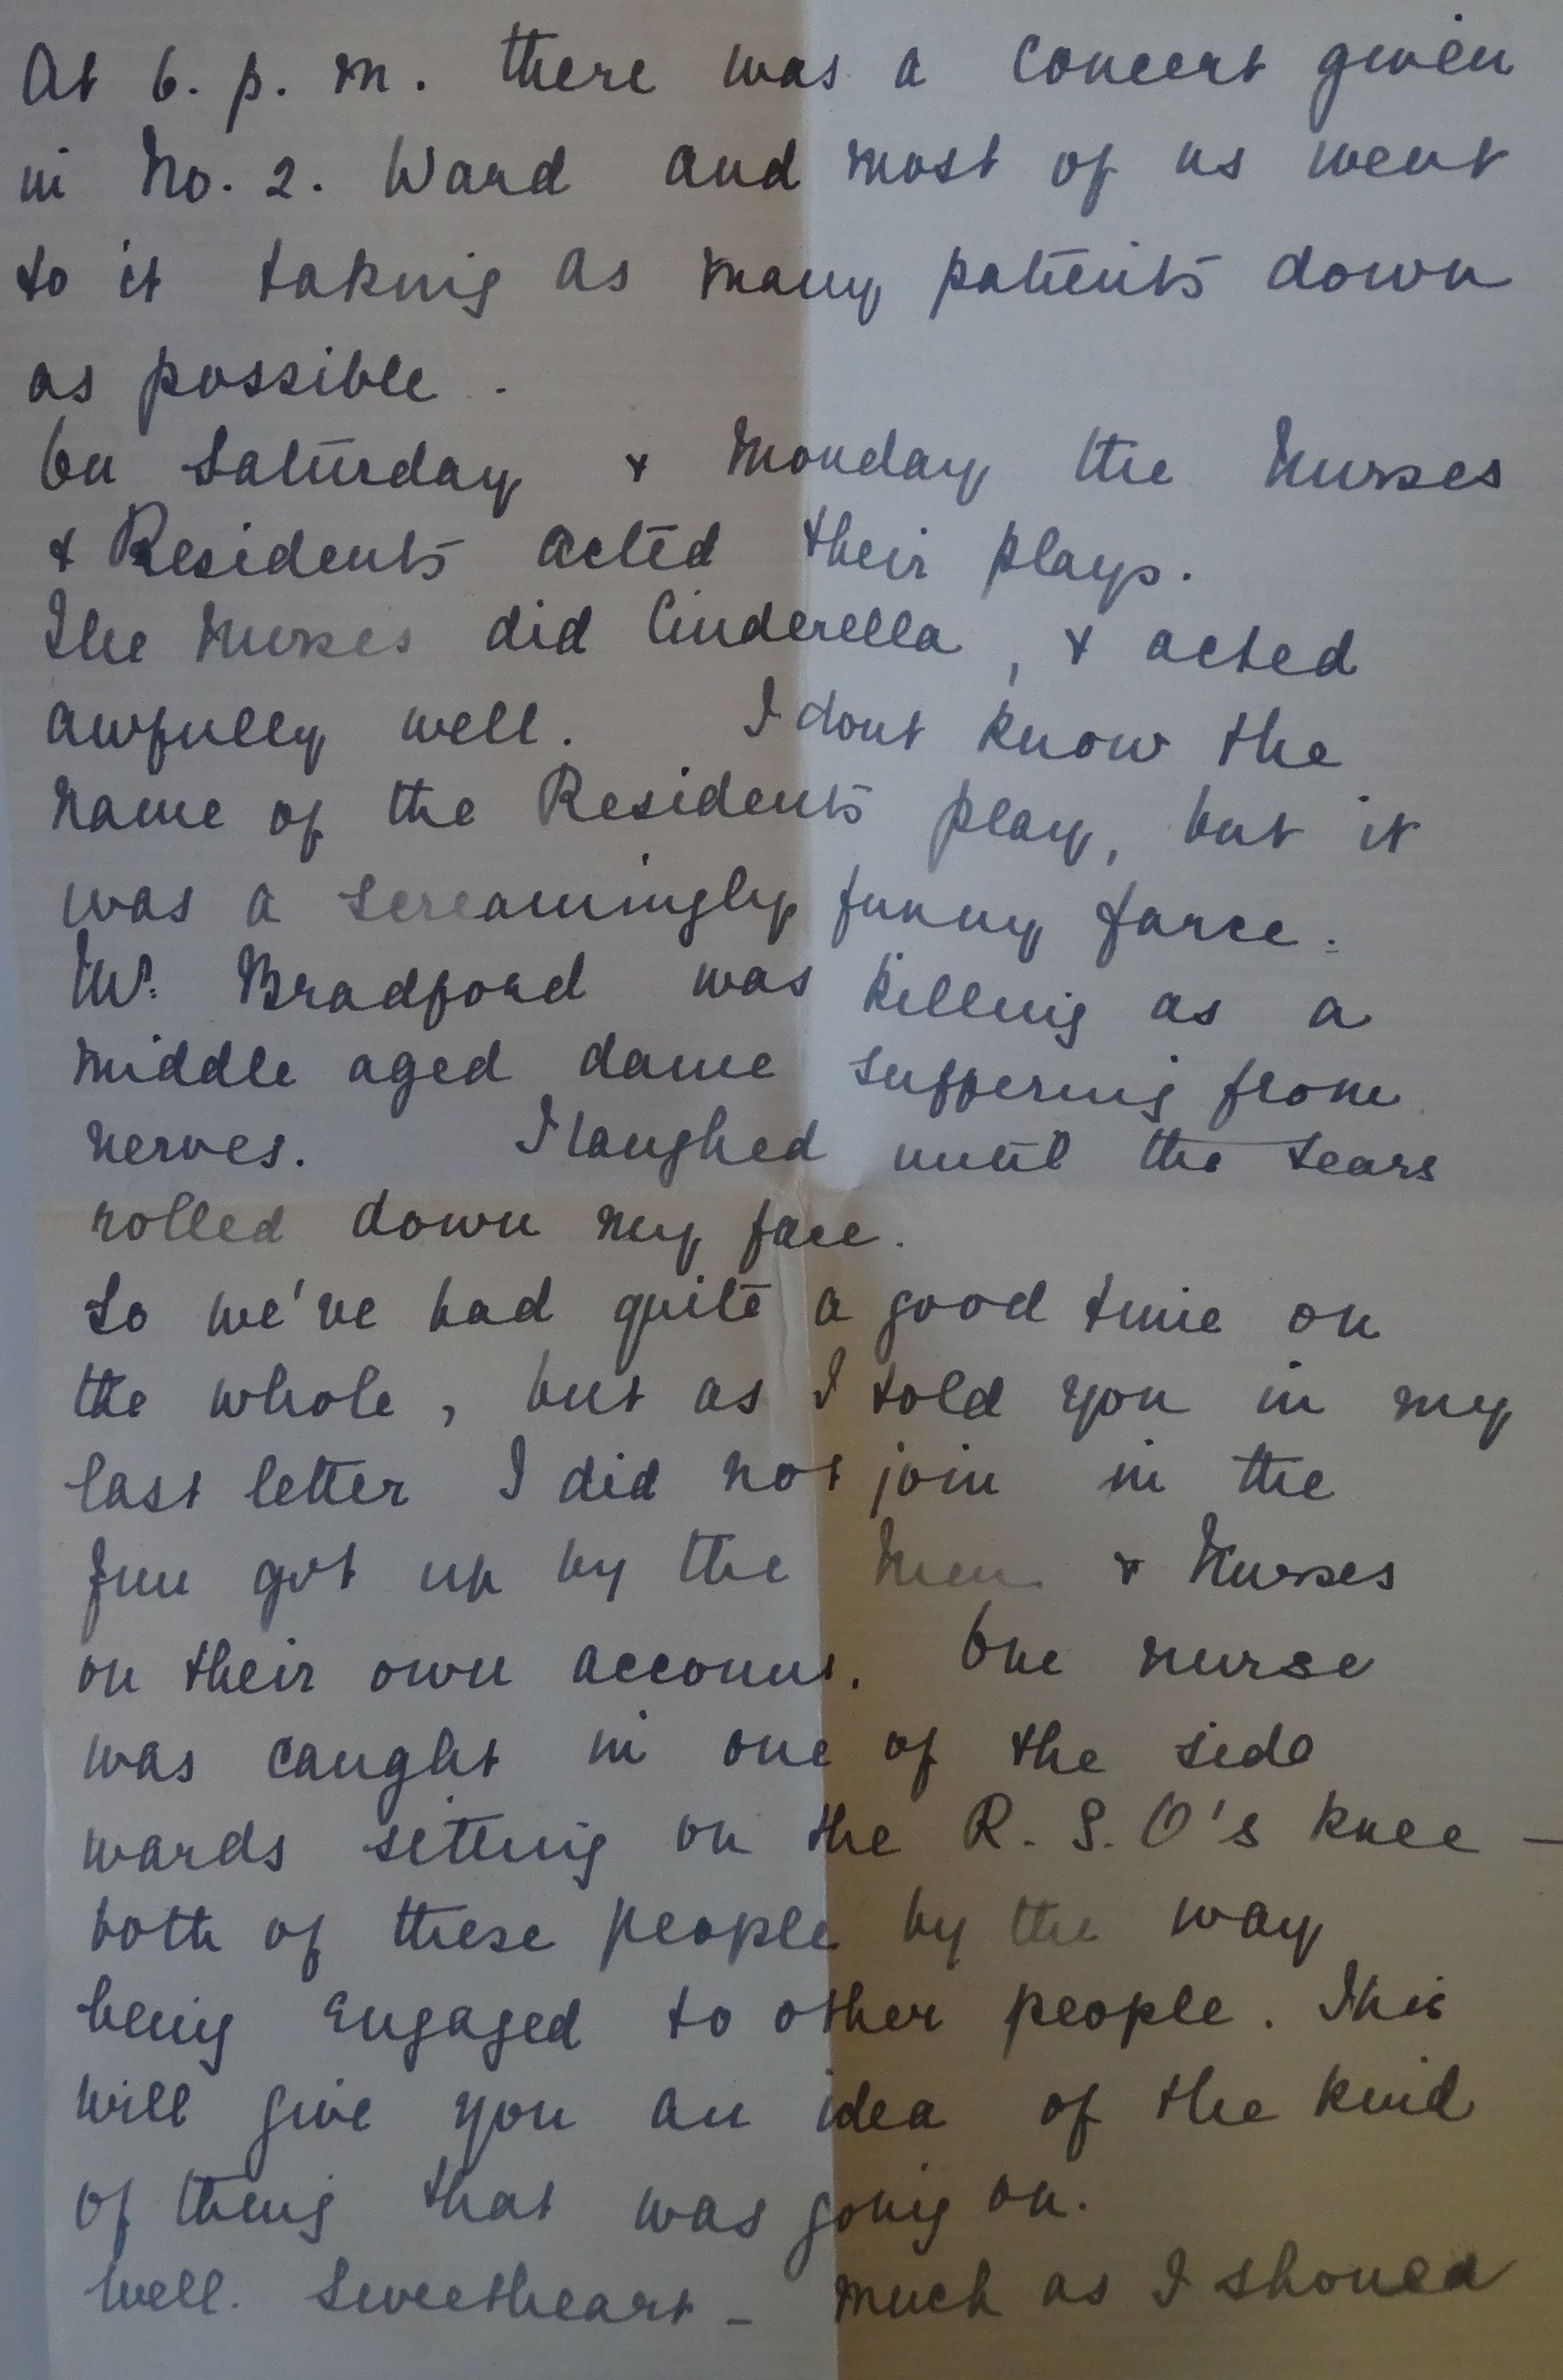 At 6. p. m. there was a concert given
in No. 2. Ward and most of us went
to it taking as many patients down
as possible.
On Saturday & Monday the Nurses
& Residents acted their plays.
The Nurses did Cinderella, & acted
awfully well. I dont know the
name of the Residents play, but it
was a screamingly funny farce.
Mr. Bradford was killing as a
middle aged dame suffering from
nerves. I laughed until the tears
rolled down my face.
So we've had quite a good time on
the whole, but as I told you in my
last letter I did not join in the
fun got up by the Men & Nurses
on their own account. One nurse
was caught in one of the side
wards sitting on the R. S. O's knee —
both of these people by the way
being engaged to other people. This
will give you an idea of the kind
of thing that was going on.
Well. Sweetheart - much as I should